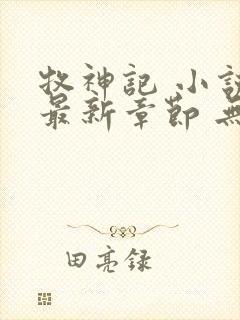 牧神記 小說
最新章節 無
田亮録